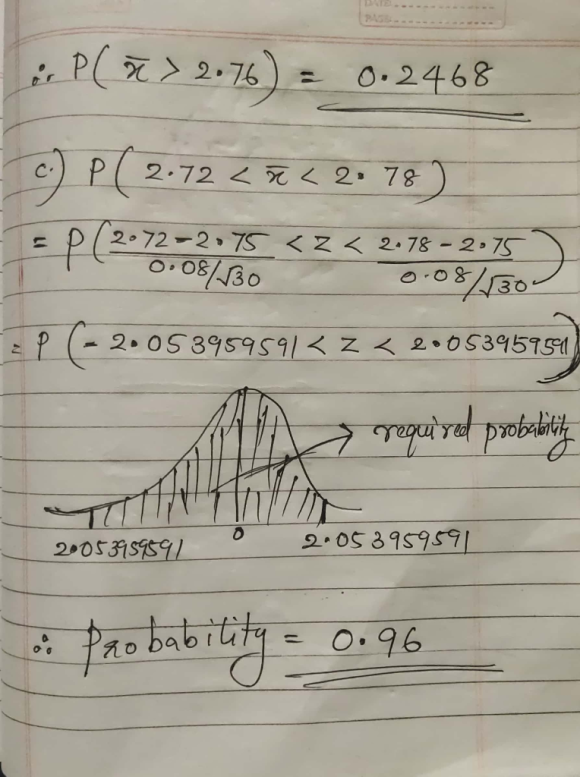 DATE
PAGE
∴ P( x̄ > 2.76) = 0.2468
c.) P( 2.72 < x̄ < 2.78 )
= P( (2.72 - 2.75)/(0.08/√30) < Z < (2.78 - 2.75)/(0.08/√30) )
= P (- 2.053959591 < Z < 2.053959591)
required probability
2.053959591 0 2.053959591
∴ Probability = 0.96